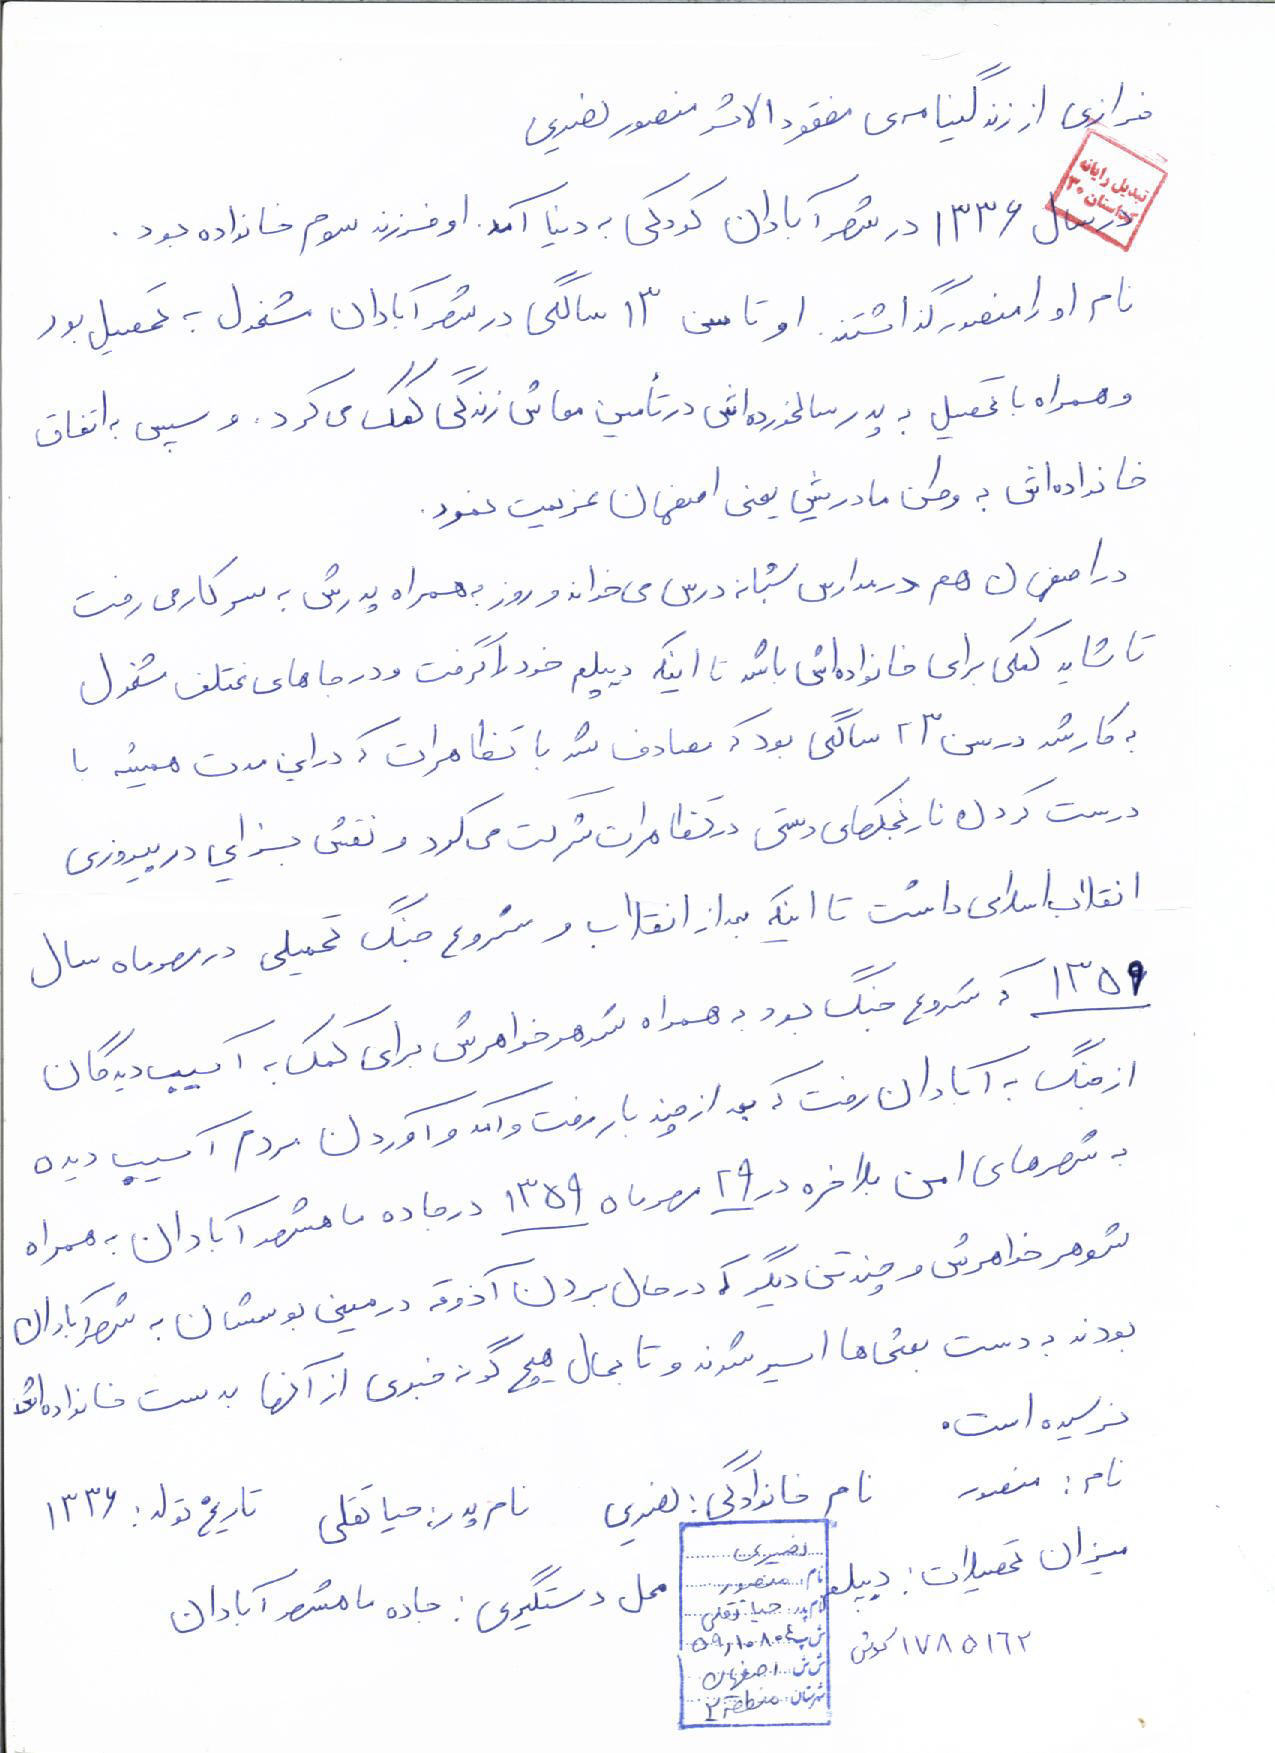 فرازی از زندگینامه‌ی مفقودالاثر منصور نصیری
تبدیل رایانه
در سال ۱۳۳۶ در شهر آبادان کودکی به دنیا آمد. او فرزند سوم خانواده بود.
نام او را منصور گذاشتند. او تا سن ۱۳ سالگی در شهر آبادان مشغول به تحصیل بود
و همراه با تحصیل به پدر سالخورده‌اش در تأمین معاش زندگی کمک می‌کرد. و سپس به اتفاق
خانواده‌اش به وطن مادریش یعنی اصفهان عزیمت نمود.
در اصفهان هم در مدارس شبانه درس می‌خواند و روز به همراه پدرش به سر کار می‌رفت
تا شاید کمکی برای خانواده‌اش باشد تا اینکه دیپلم خود را گرفت و در جاهای مختلف مشغول
به کار شد در سن ۲۳ سالگی بود که مصادف شد با تظاهرات که در این مدت همیشه با
درست کردن نارنجکهای دستی در تظاهرات شرکت می‌کرد و نقش بسزایی در پیروزی
انقلاب اسلامی داشت تا اینکه بعد از انقلاب و شروع جنگ تحمیلی در مهرماه سال
۱۳۵۹ که شروع جنگ بود به همراه شوهر خواهرش برای کمک به آسیب دیدگان
از جنگ به آبادان رفت که بعد از چند بار رفت و آمد و آوردن مردم آسیب دیده
به شهرهای امن بلاخره در ۲۹ مهرماه ۱۳۵۹ در جاده ماهشهر آبادان به همراه
شوهر خواهرش و چند تن دیگر که در حال بردن آذوقه در مینی بوسشان به شهر آبادان
بودند به دست بعثی‌ها اسیر شدند و تا بحال هیچ گونه خبری از آنها بدست خانواده‌اش
نرسیده است.
نام: منصور نام خانوادگی: نصیری نام پدر: حیاتقلی تاریخ تولد: ۱۳۳۶
میزان تحصیلات: دیپلم محل دستگیری: جاده ماهشهر آبادان
۱۷۸۵۱۶۲
نصیری
نام منصور
نام پدر حیاتقلی
ش ش اصفهان
شهرستان منطقه ۲